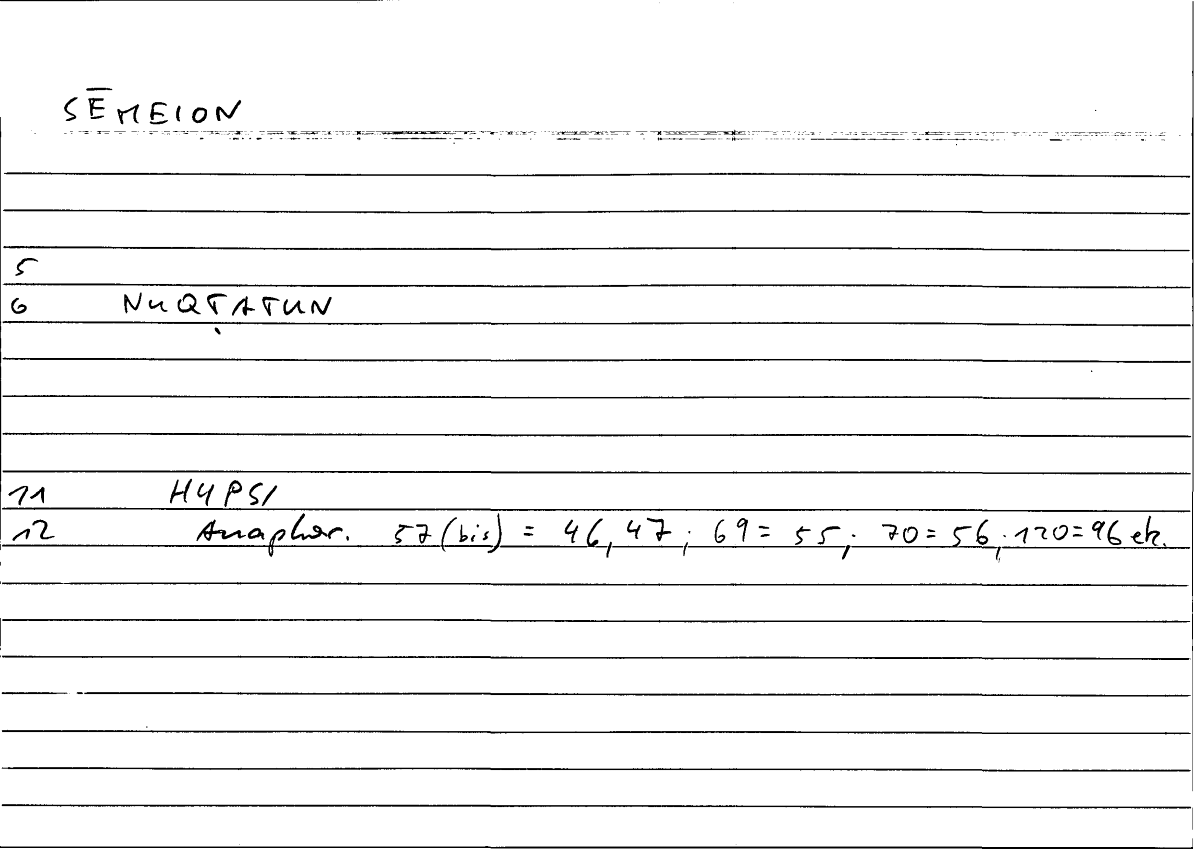 SĒMEION
5
6 NUQṬATUN
11 HYPSI
12 Anaphor. 57 (bis) = 46, 47; 69 = 55; 70 = 56; 120 = 96 etc.